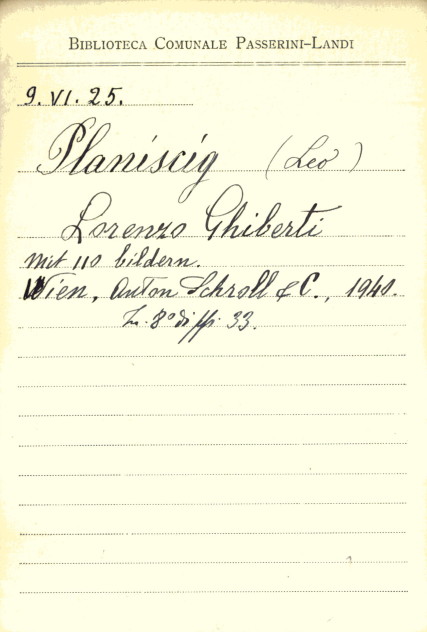 BIBLIOTECA COMUNALE PASSERINI-LANDI
9. VI. 25.
Planiscig (Leo)
Lorenzo Ghiberti
Mit 110 bildern.
Wien, Anton Schroll & C., 1940.
8° di pp. 33.